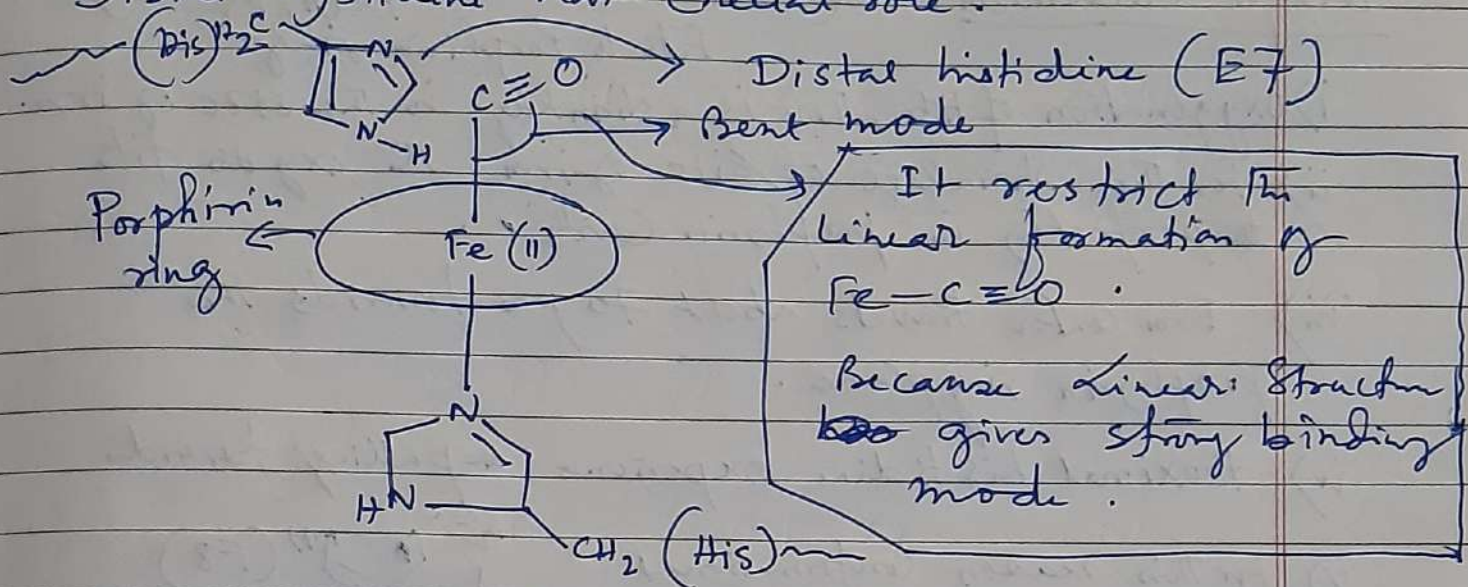 Distal histidine has crucial role.
(Dis) H₂C
N
N-H
C≡O
Distal histidine (E7)
Bent mode
Porphirin
ring
Fe (II)
It restrict the
linear formation of
Fe-C≡O .
Because Linear Structure
gives strong binding
mode .
N
HN
CH₂ (His)